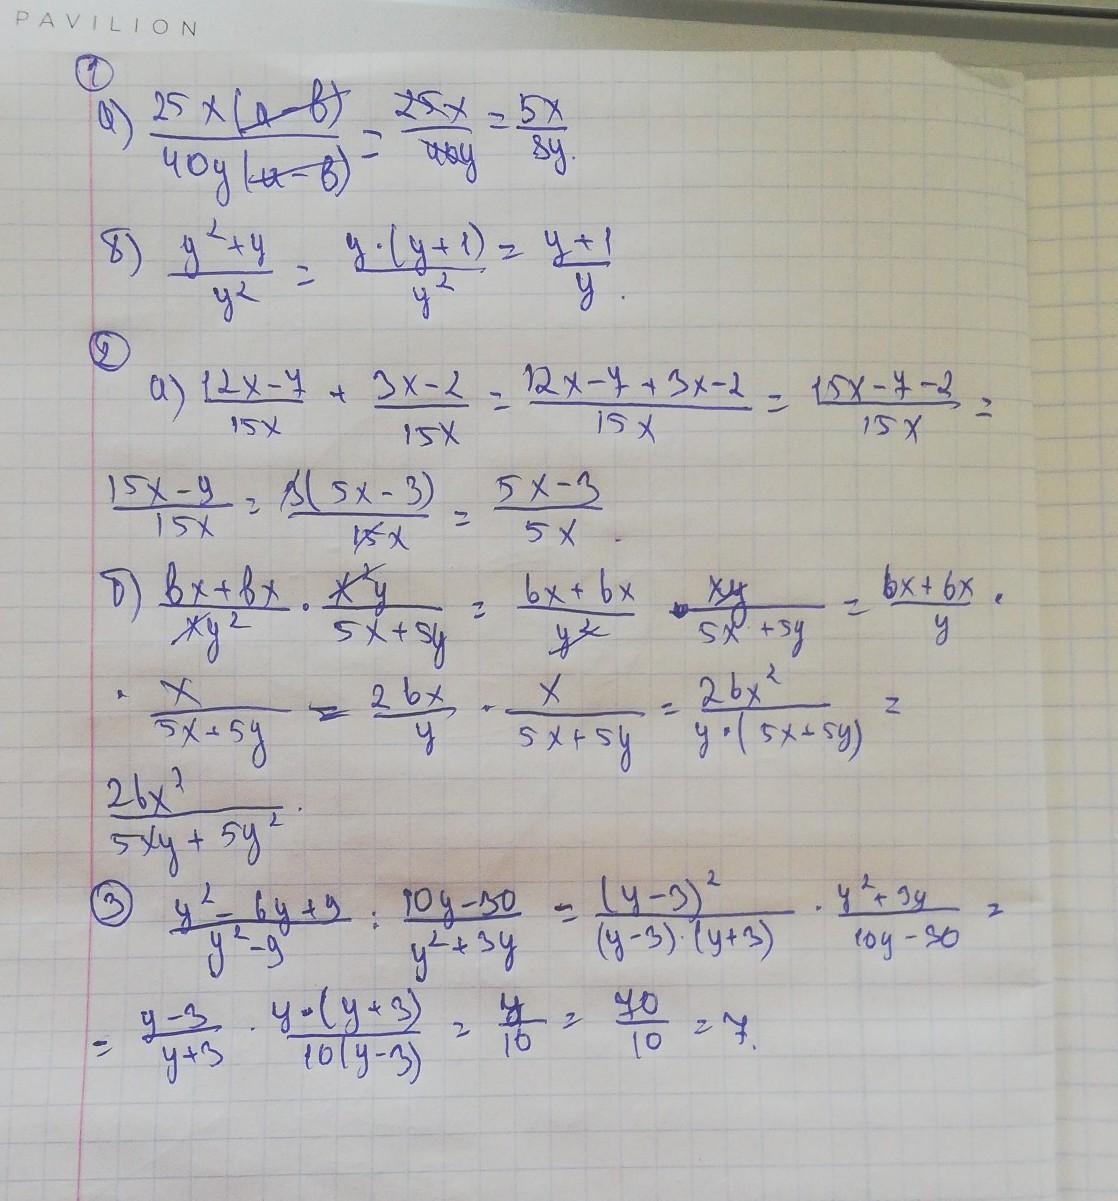 PAVILION
①
а) 25x(a-b)/40y(a-b) = 25x/40y = 5x/8y.
б) y²+y/y² = y·(y+1)/y² = y+1/y.
②
а) 12x-7/15x + 3x-2/15x = 12x-7+3x-2/15x = 15x-7-2/15x =
15x-9/15x = 3(5x-3)/15x = 5x-3/5x.
б) bx+bx/xy² · x²y/5x+5y = bx+bx/y² · xy/5x+5y = bx+bx/y ·
· x/5x+5y = 2bx/y · x/5x+5y = 2bx²/y·(5x+5y) =
2bx²/5xy+5y².
③ y²-6y+9/y²-9 : 10y-30/y²+3y = (y-3)²/(y-3)·(y+3) · y²+3y/10y-30 =
= y-3/y+3 · y·(y+3)/10(y-3) = y/10 = 70/10 = 7.